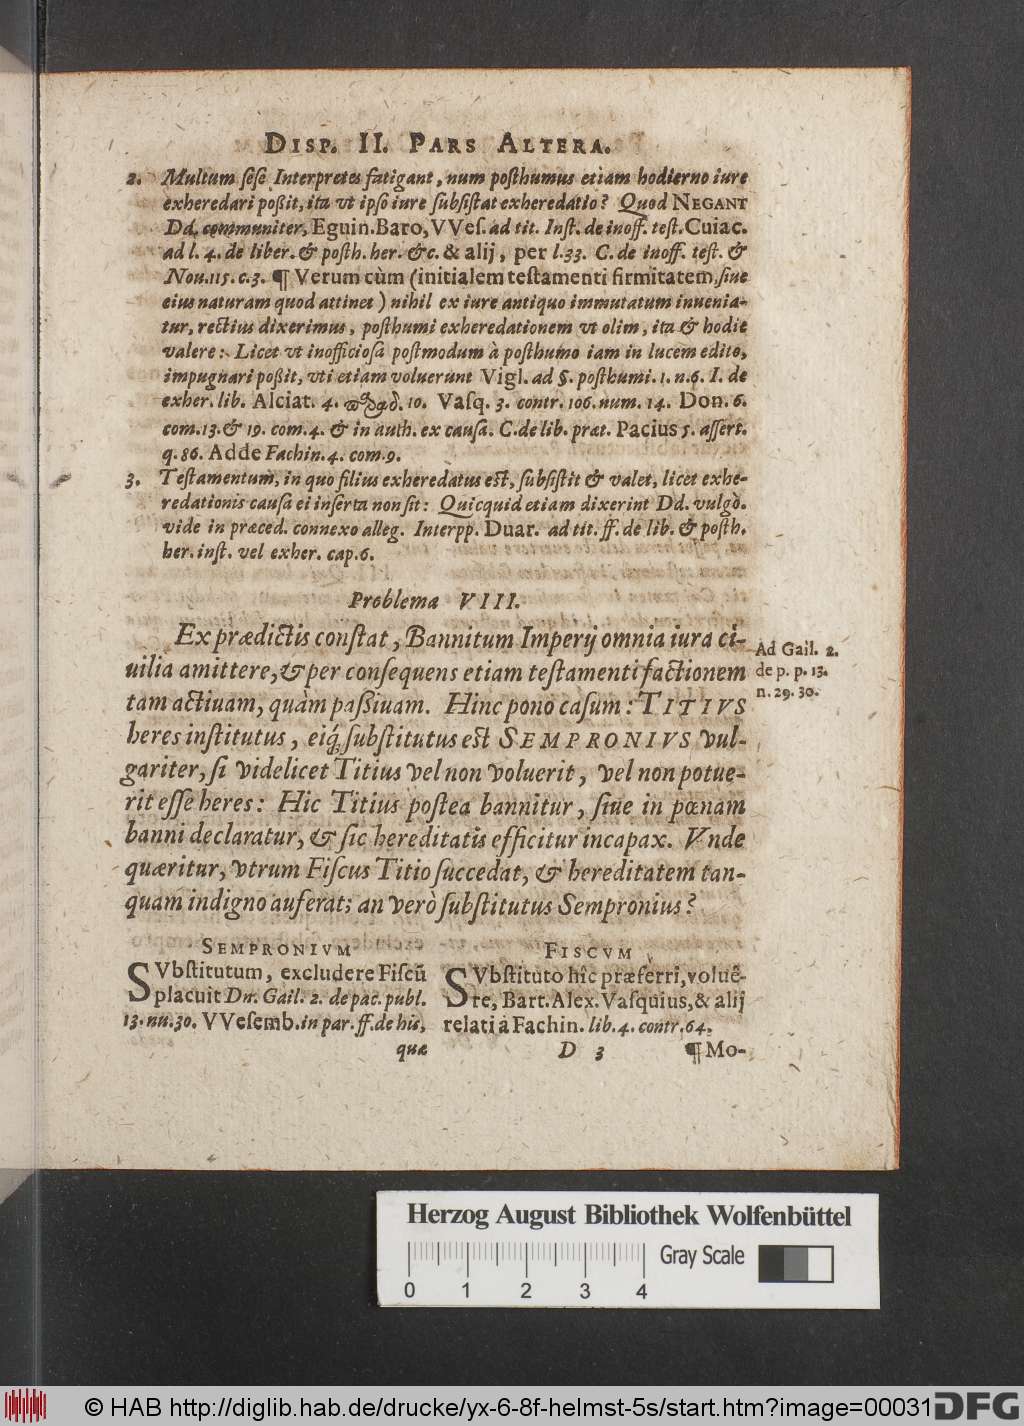 DISP. II. PARS ALTERA.
2. Multum sese Interpretes fatigant, num posthumus etiam hodierno iure
exheredari poßit, ita vt ipso iure subsistat exheredatio? Quod NEGANT
Dd. communiter, Eguin. Baro, VVes. ad tit. Inst. de inoff. test. Cuiac.
ad l. 4. de liber. & posth. her. &c. & alij, per l. 33. C. de inoff. test. &
Nou. 115. c. 3. ¶ Verum cùm (initialem testamenti firmitatem, siue
eius naturam quod attinet) nihil ex iure antiquo immutatum inuenia-
tur, rectius dixerimus, posthumi exheredationem vt olim, ita & hodie
valere: Licet vt inofficiosa postmodum à posthumo iam in lucem edito,
impugnari poßit, vti etiam voluerunt Vigl. ad §. posthumi. 1. n. 6. I. de
exher. lib. Alciat. 4. 10. Vasq. 3. contr. 106. num. 14. Don. 6.
com. 13. & 19. com. 4. & in auth. ex causa. C. de lib. præt. Pacius 5. assert.
q. 86. Adde Fachin. 4. com. 9.
3. Testamentum, in quo filius exheredatus est, subsistit & valet, licet exhe-
redationis causa ei inserta non sit: Quicquid etiam dixerint Dd. vulgò.
vide in præced. connexo alleg. Interpp. Duar. ad tit. ff. de lib. & posth.
her. inst. vel exher. cap. 6.
Problema VIII.
Ex prædictis constat, Bannitum Imperij omnia iura ci-
uilia amittere, & per consequens etiam testamenti factionem
tam actiuam, quàm passiuam. Hinc pono casum: TITIVS
heres institutus, eiq́; substitutus est SEMPRONIVS vul-
gariter, si videlicet Titius vel non voluerit, vel non potue-
rit esse heres: Hic Titius postea bannitur, siue in pœnam
banni declaratur, & sic hereditatis efficitur incapax. Vnde
quæritur, vtrum Fiscus Titio succedat, & hereditatem tan-
quam indigno auferat; an verò substitutus Sempronius?
Ad Gail. 2.
de p. p. 13.
n. 29. 30.
SEMPRONIVM
SVbstitutum, excludere Fiscũ
placuit Dn. Gail. 2. de pac. publ.
13. nu. 30. VVesemb. in par. ff. de his,
quæ
FISCVM
SVbstituto hîc præferri, voluê-
re, Bart. Alex. Vasquius, & alij
relati à Fachin. lib. 4. contr. 64.
D 3 ¶ Mo-
Herzog August Bibliothek Wolfenbüttel
Gray Scale
0 1 2 3 4
© HAB http://diglib.hab.de/drucke/yx-6-8f-helmst-5s/start.htm?image=00031
DFG